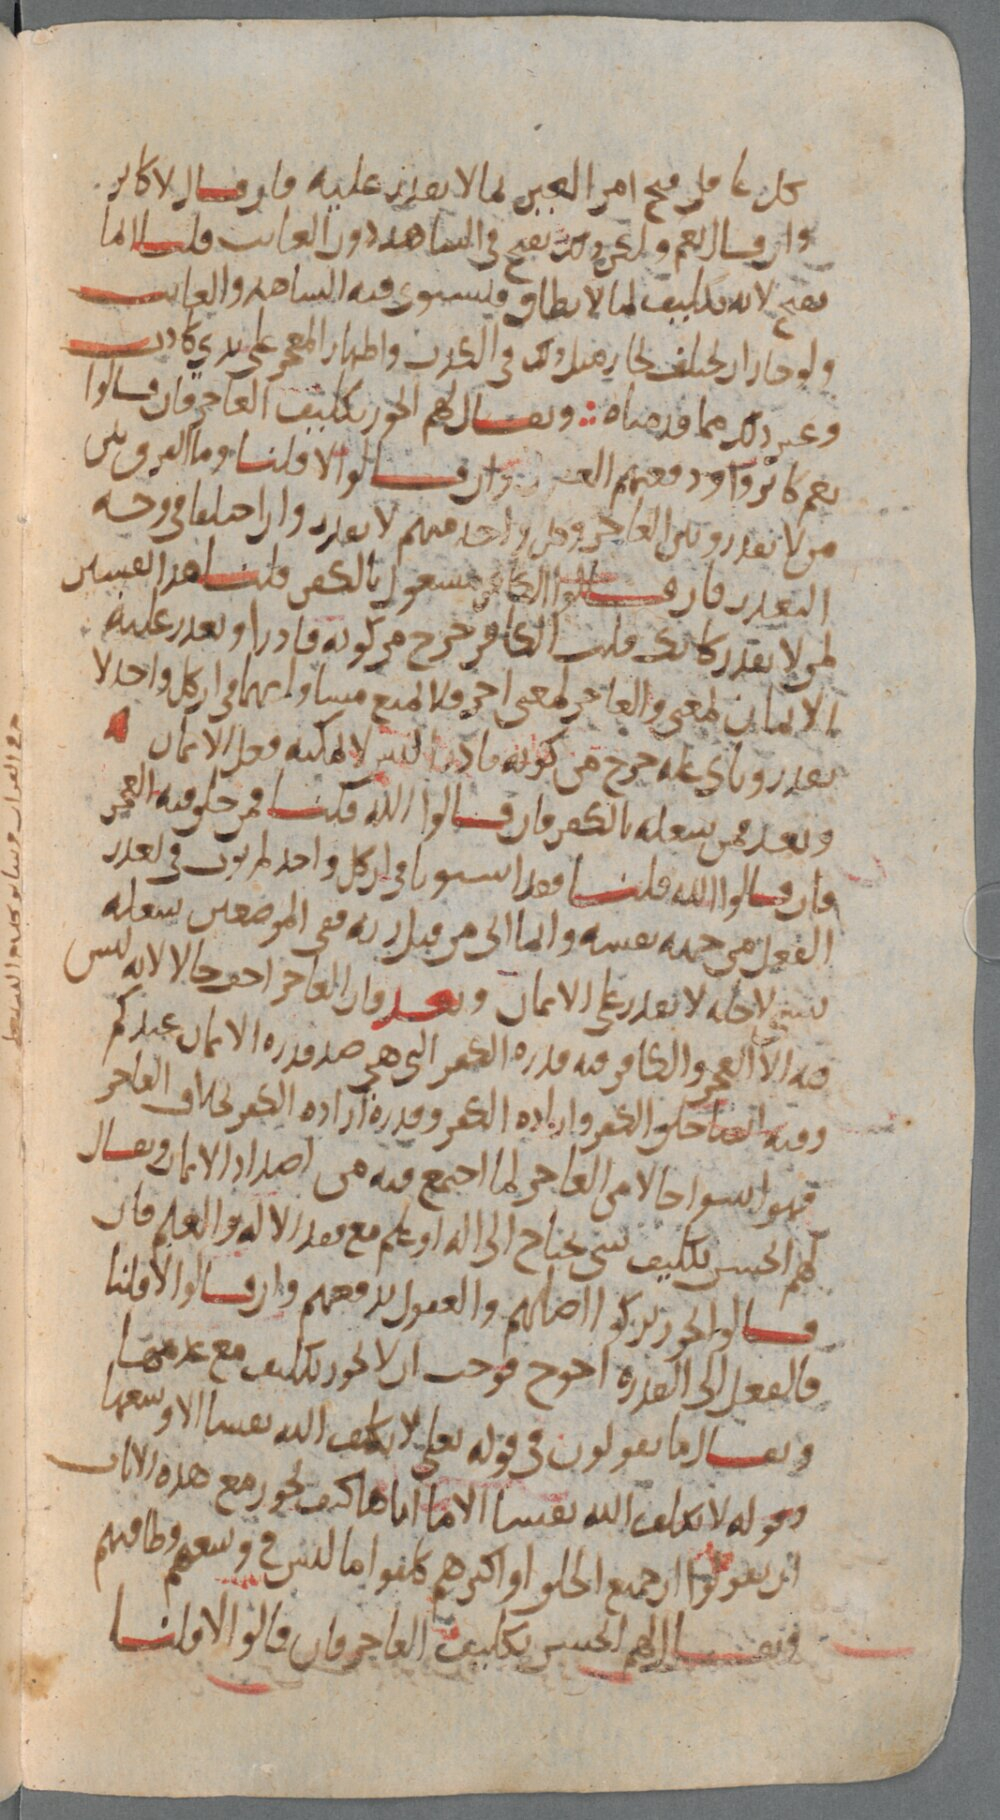 كل عاقل قبح امر الغير لما لا يقدر عليه فان قال لا كابر
وان قال نعم ولكن ذلك يقبح في الشاهد دون الغائب قلنا انما
يقبح لانه تكليف لما لا يطاق فيستوي فيه الشاهد والغائب
ولو جاز ان يختلف لجاز مثل ذلك في الكذب واظهار المعجز على يدي كاذب
وغير ذلك مما قدمناه ويقال لهم ايجوز تكليف العاجز فان قالوا
نعم كابروا ودفعهم العقل وان قالوا لا قلنا وما الفرق بين
من لا يقدر وبين العاجز وكل واحد منهم لا يقدر وان اختلفا في وجه
التعذر فان قالوا الكافر مشغول بالكفر قلنا هذا القسمين
لمن لا يقدر كاتى قلت الكافر خرج من كونه قادرا وتعذر عليه
الايمان لمعنى والعاجز لمعنى اخر فلا يمنع مساواتهما في ان كل واحد لا
يقدر وباي علة خرج من كونه قادرا اليس لا يمكنه فعل الايمان
وبعد فمن شغله بالكفر فان قالوا الله قلنا فمن خلق فيه العجز
فان قالوا الله قلنا فقد استويا في ان كل واحد لم يؤت في تعذر
الفعل من جهة نفسه وانما اتى من قبل ربه ففي الموضعين شغله
بشيء لاجله لا يقدر على الايمان وبعد فان العاجز اخف حالا لانه ليس
فيه الا العجز والكافر فيه قدرة الكفر التي هي ضد قدرة الايمان عندكم
وفيه ايضا خلق الكفر وارادة الكفر وقدرة ارادة الكفر بخلاف العاجز
فهو اسوا حالا من العاجز لما اجتمع فيه من اضداد الايمان ويقال
لهم ايحسن تكليف شيء يحتاج الى الة او علم مع فقد الالة والعلم فان
قالوا يجوز تركوا اصلهم والعقول تدفعهم وان قالوا لا قلنا
فالفعل الى القدرة احوج فوجب ان لا يجوز تكليف مع عدمها
ويقال ما تقولون في قوله تعلى لا يكلف الله نفسا الا وسعها
وقوله لا يكلف الله نفسا الا ما اتاها كيف يجوز مع هذه الايات
ان تقولوا ان جميع الخلق او اكثرهم كلفوا ما ليس في وسعهم وطاقتهم
ويقال لهم ايحسن تكليف العاجز فان قالوا لا قلنا